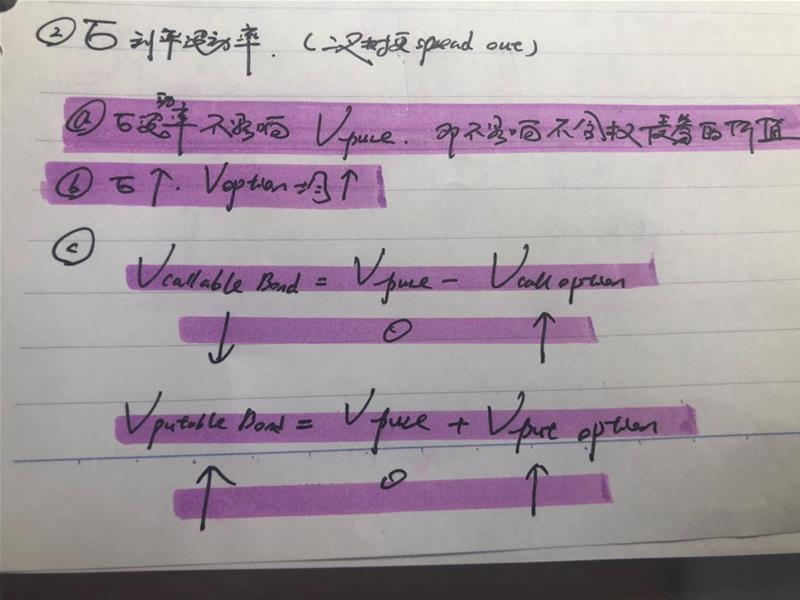 ② σ 利率波动率. (二叉树更 spread out)
ⓐ σ 波动率不影响 Vpure. 即不影响不含权债券的价值
ⓑ σ↑. Voption 均↑
ⓒ
Vcallable Bond = Vpure - Vcall option
↓ 0 ↑
Vputable Bond = Vpure + Vput option
↑ 0 ↑